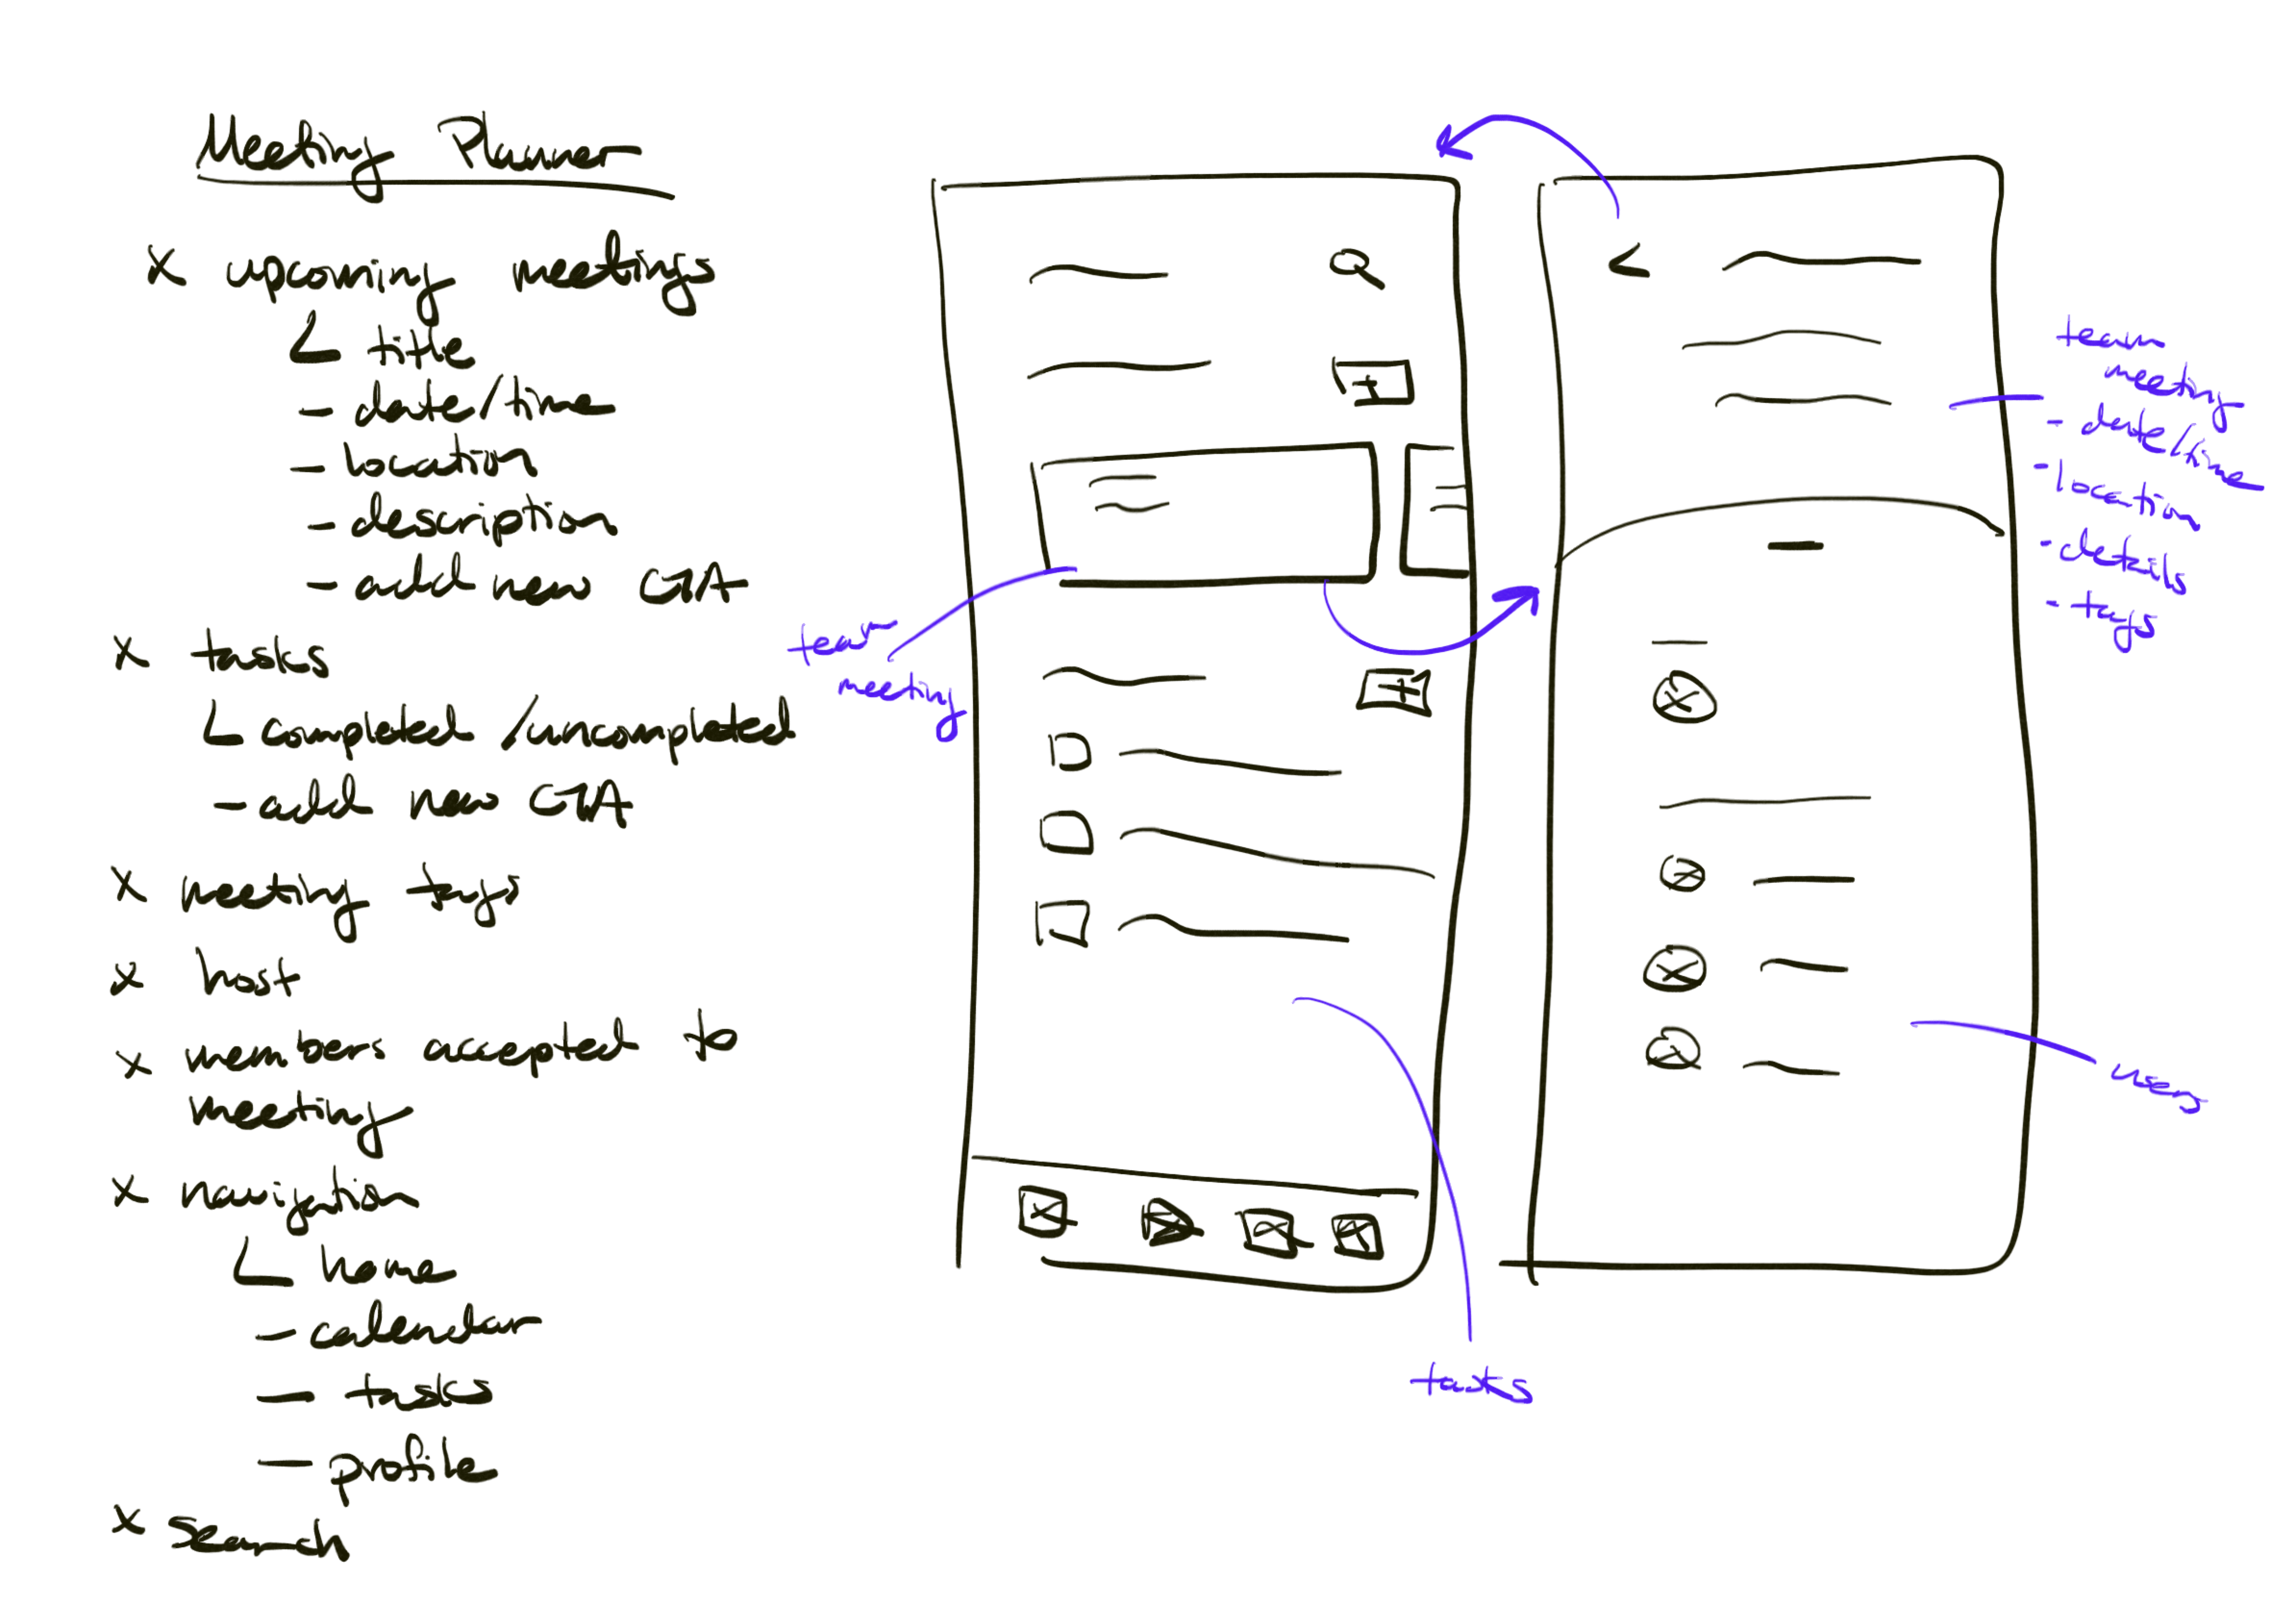 Meeting Planner
x upcoming meetings
L title
- date/time
- location
- description
- add new CTA
x tasks
L completed/uncompleted
- add new CTA
x meeting tags
x host
x members accepted to
meeting
x navigation
L home
- calendar
- tasks
- profile
x search
team
meeting
tasks
team
meeting
- date/time
- location
- details
- tags
users